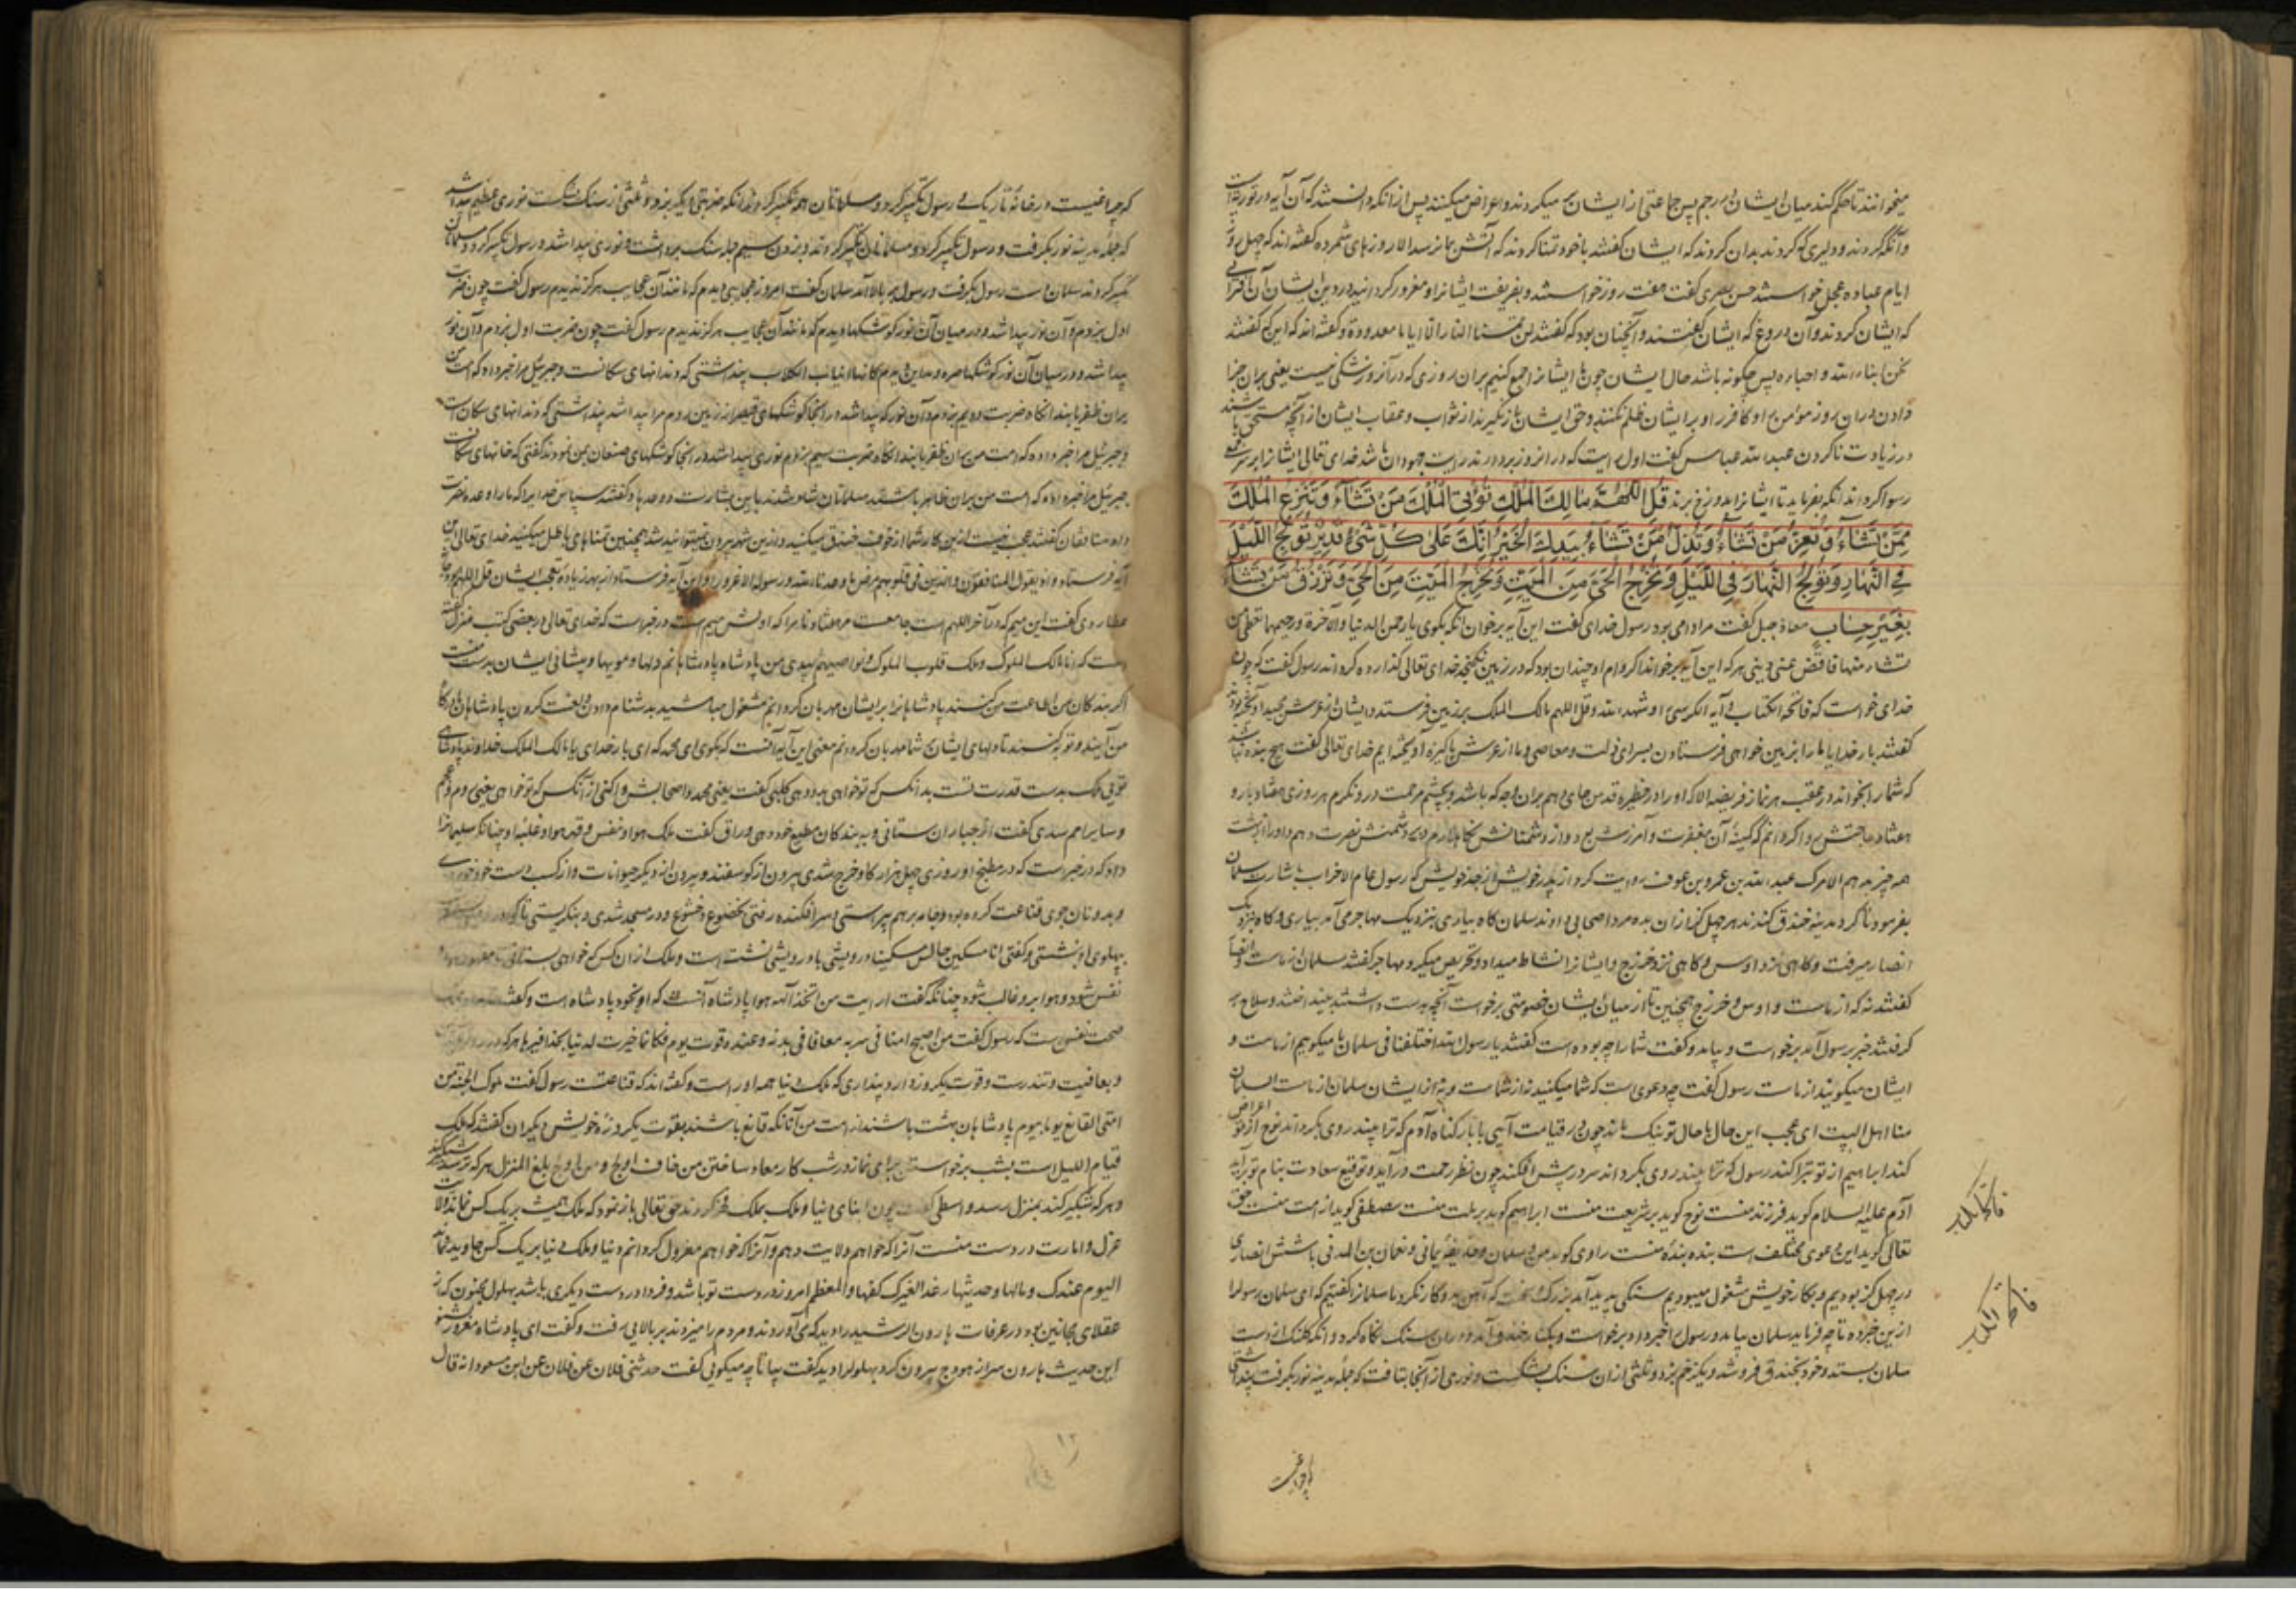 میخوانند تا حکم کند میان ایشان در رجم پس جماعتی از ایشان بر میکردند و اعراض میکنند پس از انکه دانستند که آن آیه در توریت است
وآنکه کردند و دلیری که کردند بدان کردند که ایشان گفتند با خود تمنا کردند که آتش بما نرسد الا روزهای شمرده گفته اند که چهل روز
ایام عباده عجل خواستند حسن بصری گفت هفت روز خواستند و بفریفت ایشانرا و مغرور کردانید در دین ایشان آن افترای
که ایشان کردند و آن دروغ که ایشان گفتند و آنچنان بود که گفتند لن تمسنا النار الا ایاما معدودة و گفته اند که این که گفتند
نحن ابناء الله و احباوه پس چگونه باشد حال ایشان چون ما ایشانرا جمع کنیم بران روزی که در آنروز شکی نیست یعنی بران جزا
دادن دران روز مومن را و کافر را و بر ایشان ظلم نکنند و حق ایشان باز نگیرند از ثواب و عقاب ایشان از آنچه مستحق باشند
در زیادت ناکردن عبدالله عباس گفت اول رایت که درانروز بردارند رایت جهودان باشد خدای تعالی ایشانرا بر سر
رسوا کرداند انکه بفرماید تا ایشانرا بدوزخ برند قُلِ اللّٰهُمَّ مَالِكَ الْمُلْكِ تُؤْتِي الْمُلْكَ مَنْ تَشَآءُ وَتَنْزِعُ الْمُلْكَ
مِمَّنْ تَشَآءُ وَتُعِزُّ مَنْ تَشَآءُ وَتُذِلُّ مَنْ تَشَآءُ بِيَدِكَ الْخَيْرُ اِنَّكَ عَلٰى كُلِّ شَيْءٍ قَدِيْرٌ تُوْلِجُ اللَّيْلَ
فِي النَّهَارِ وَتُوْلِجُ النَّهَارَ فِي اللَّيْلِ وَتُخْرِجُ الْحَيَّ مِنَ الْمَيِّتِ وَتُخْرِجُ الْمَيِّتَ مِنَ الْحَيِّ وَتَرْزُقُ مَنْ تَشَآءُ
بِغَيْرِ حِسَابٍ معاذ جبل گفت مرا وامی بود رسول خدای گفت این آیه برخوان انکه بگوی یا رحمن الدنیا والآخرة و رحیمهما تعطی من
تشاء منها فاقض عنی دینی هر که این آیه برخواند اگر وام او چندان بود که در زمین نگنجد خدای تعالی گذارده کرداند رسول گفت که چون
خدای خواست که فاتحة الکتاب و آیه الکرسی و شهد الله و قل اللهم مالک الملک بزمین فرستد
گفتند بار خدایا ما را بزمین خواهی فرستادن بسرای ذلت و معاصی و ما از عرش پاکیزه آویخته ایم خدای تعالی گفت هیچ بنده نباشد
که شما را بخواند در عقب هر نماز فریضه الا که او را در حظیره قدس جای دهم بران وجه که باشد و بچشم مرحمت درو نگرم هر روزی هفتاد بار و
هفتاد حاجتش روا کردانم که کمینه آن مغفرت و آمرزش بود و از دشمنانش نگاه دارم و بر دشمنش نصرت دهم
همه چیز بدهم الا مرگ عبدالله بن عمرو بن عوف روایت کرد از پدر خویش از جد خویش که رسول عام الاحزاب باشارت سلمان
بفرمود تا گرد مدینه خندق کندند هر چهل گز ازان بده مرد اصحابی دادند سلمان گاه بیاری بنزدیک مهاجر می آمد بیاری و گاه نزدیک
انصار میرفت و گاهی نزد اوس و گاهی نزد خزرج و ایشانرا نشاط میداد و تحریض میکرد مهاجر گفتند سلمان از ماست و انصار
گفتند نه که از ماست و اوس و خزرج همچنین تا از میان ایشان خصومتی برخواست آنچه بدست داشتند بینداختند و سلاح بر
گرفتند خبر برسول آمد برخواست و بیامد و گفت شما را چه بوده است گفتند یا رسول الله اختلفنا فی سلمان ما میگوییم از ماست و
ایشان میگویند از ماست رسول گفت چه دعوی است که شما میکنید نه از شماست و نه از ایشان سلمان از ماست السلمان
منا اهل البیت ای عجب این حال با حال تو نیک ماند چون در قیامت آیی با بار گناه آدم که ترا بیند روی بگرداند نوح از تو اعراض
کند ابراهیم از تو تبرا کند رسول که ترا بیند روی بگرداند سر در پیش افکند چون نظر رحمت درآید و توقیع سعادت بنام تو برآید
آدم علیه السلام گوید فرزند منست نوح گوید بر شریعت منست ابراهیم گوید بر ملت منست مصطفی گوید از امت منست حق
تعالی گوید این دعوی مختلف است بنده بنده منست راوی گوید من و سلمان و حذیفه یمانی و نعمان بن المدنی با شش انصاری
در چهل گز بودیم و بکار خویش مشغول میبودیم سنگی پدید آمد بزرگ سخت که آهن برو کار نکرد ما سلمانرا گفتیم که ای سلمان رسولرا
ازین خبر ده تا چه فرماید سلمان بیامد و رسول را خبر داد برخواست و بکنار خندق آمد و دران سنگ نگاه کرد و انکه کلنک از دست
سلمان بستد و خود بخندق فرو شد و یک زخم بزد و ثلثی ازان سنگ بشکست و نوری از آنجا بتافت که جمله مدینه نور بگرفت پنداشتی
فاتحة الکتاب
که چراغیست در خانه تاریک رسول تکبیر کرد و مسلمانان همه تکبیر کردند انکه ضربتی دیگر بزد و ثلثی از سنگ بشکست نوری عظیم پیدا شد
که جمله مدینه نور بگرفت و رسول تکبیر کرد و مسلمانان تکبیر کردند و بزدن سیم جمله سنگ برداشت و نوری پیدا شد و رسول تکبیر کرد و مسلمانان
تکبیر کردند سلمان دست رسول بگرفت و رسول بر بالا آمد سلمان گفت امروز عجایبی دیدم که مانند آن عجایب هرگز ندیدم رسول گفت چون ضربت
اول بزدم و آن نور پیدا شد و در میان آن نور کوشکها دیدم که مانند آن عجایب هرگز ندیدم رسول گفت چون ضربت اول بزدم و آن نور
پیدا شد و در میان آن نور کوشکها حیره و مداین دیدم کانها انیاب الکلاب پنداشتی که دندانهای سگانست و جبرئیل مرا خبر داد که امت من
بران ظفر یابند انگاه ضربت دویم بزدم و آن نور که پیدا شد در آنجا کوشکهای قیصر از زمین روم مرا پیدا شد پنداشتی که دندانهای سگان است
و جبرئیل مرا خبر داد که امت من بران ظفر یابند انگاه ضربت سیم بزدم نوری پیدا شد در آنجا کوشکهای صنعان بمن نمودند گفتی که خانهای سگانست
جبرئیل مرا خبر داد که امت من بران ظاهر باشند مسلمانان شاد شدند باین بشارت و وعدها و گفتند سپاس خدایرا که ما را وعده نصرت
داد منافقان گفتند عجب نیست ازین کار شما از خوف خندق میکنید و ازین شهر بیرون نمیتوانید شد همچنین تمناهای باطل میکنید خدای تعالی این
آیه فرستاد و اذ یقول المنافقون والذین فی قلوبهم مرض ما وعدنا الله و رسوله الا غرورا و این آیه فرستاد از بهر زیاده تعجب ایشان قل اللهم
عطاردی گفت این میم که در آخر اللهم است جامعست مر هفتاد نام را که اولش میم است در خبر است که خدای تعالی در بعضی کتب منزل گفته
است که انا مالک الملوک و ملک قلوب الملوک و نواصیهم بیدی من پادشاه پادشاهانم دلها و مویها و پیشانی ایشان بدست منست
اگر بندگان من طاعت من کنند پادشاهانرا بر ایشان مهربان کردانم مشغول مباشید بدشنام دادن و لعنت کردن پادشاهان
من آیید و توبه کنید تا دلهای ایشان بر شما مهربان کردانم معنی این آیه آنست که بگوی ای محمد که ای بار خدای یا مالک الملک خداوند پادشاهی
توتی ملک بدست قدرت تست بدانکس که تو خواهی بدهی کلبی گفت یعنی محمد و اصحابش و اکنی از آنکس که تو خواهی یعنی روم و عجم
و سایر امم سدی گفت از جباران ستانی و به بندگان مطیع خود دهی وراق گفت ملک هوا و نفس و قهر هوا و غلبه او چنانکه سلیمانرا
داد که در خبر است که در مطبخ او روزی چهل هزار گاو خرج شدی بیرون از گوسفند و بیرون از دیگر حیوانات و از کسب دست خود خوردی
و بدو نان جوی قناعت کرده بود و جامه بر هم پیراستی و سر افکنده رفتی بخضوع و خشوع و در مسجد شدی و بنگریستی تا کجا
بپهلوی او بنشستی و گفتی انا مسکین جالس مسکینا درویشی با درویشی نشست است و ملک ازان کس که خواهی بستانی
نفس شود و هوا برو غالب شود چنانکه گفت ارایت من اتخذ الهه هواه پادشاه آنست که او بخود پادشاه است و گفته
صحت نفس است که رسول گفت من اصبح امنا فی سربه معافا فی بدنه و عنده قوت یوم فکانما خیرت له الدنیا بحذافیرها هر که
و بعافیت و تندرست و قوت یکروزه دارد پنداری که ملک دنیا همه او راست و گفته اند که قناعتست رسول گفت ملوک الجنة من
امتی القانع یوما بیوم پادشاهان بهشت باشند از امت من آنانکه قانع باشند بقوت یکروزه خویش دیگران گفتند که ملک
قیام اللیل است بشب برخواستن برای نماز و در شب کار معاد ساختن من خاف ادلج و من ادلج بلغ المنزل هر که ترسد شبگیر کند
و هر که شبگیر کند بمنزل رسد واسطی گفت چون ابنای دنیا و ملک بملک فخر کردند حق تعالی باز نمود که ملک همیشه بر یک کس نماند ولایت
عزل و امارت در دست منست آنرا که خواهم ولایت دهم و آنرا که خواهم معزول گردانم دنیا و ملک دنیا بر یک کس جاوید نماند
الیوم عندک و مالها و حدیثها و غدا لغیرک کفها والمعظم امروز در دست تو باشد و فردا در دست دیگری باشد بهلول مجنون که از
عقلای مجانین بود در عرفات هارون الرشید را دید که می آوردند و مردم را میزدند بر بالایی رفت و گفت ای پادشاه مغرور بشنو
این حدیث هارون سر از هودج بیرون کرد و بهلول را دید گفت بیا تا چه میگویی گفت حدثنی فلان عن فلان عن ابن مسعود انه قال